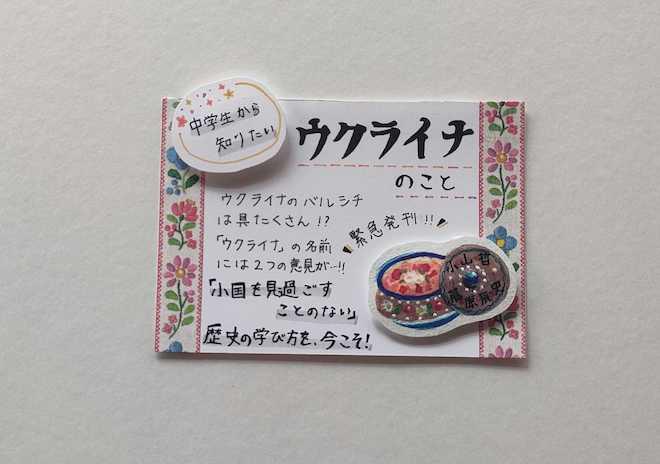 中学生から
知りたい
ウクライナ
のこと
ウクライナのバルシチ
は具だくさん!?
「ウクライナ」の名前
には2つの意見が…!!
緊急発刊!!
「小国を見過ごす
ことのない」
歴史の学び方を、今こそ!
小山哲
藤原辰史